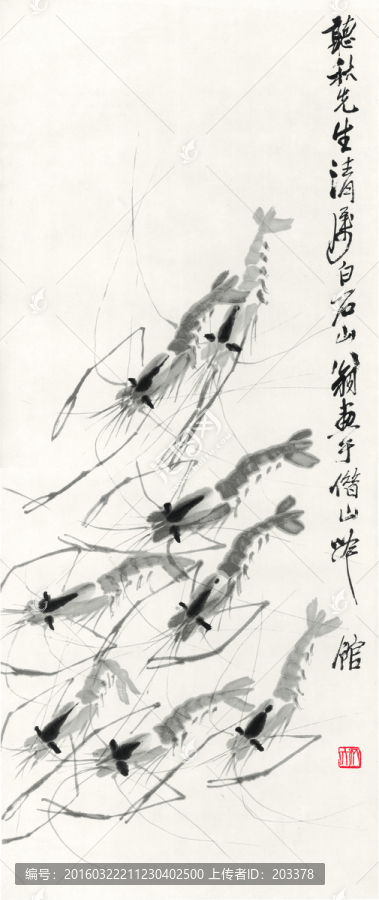 聽秋先生清屬白石山翁畫于借山吟館
编号：20160322211230402500 上传者ID：203378